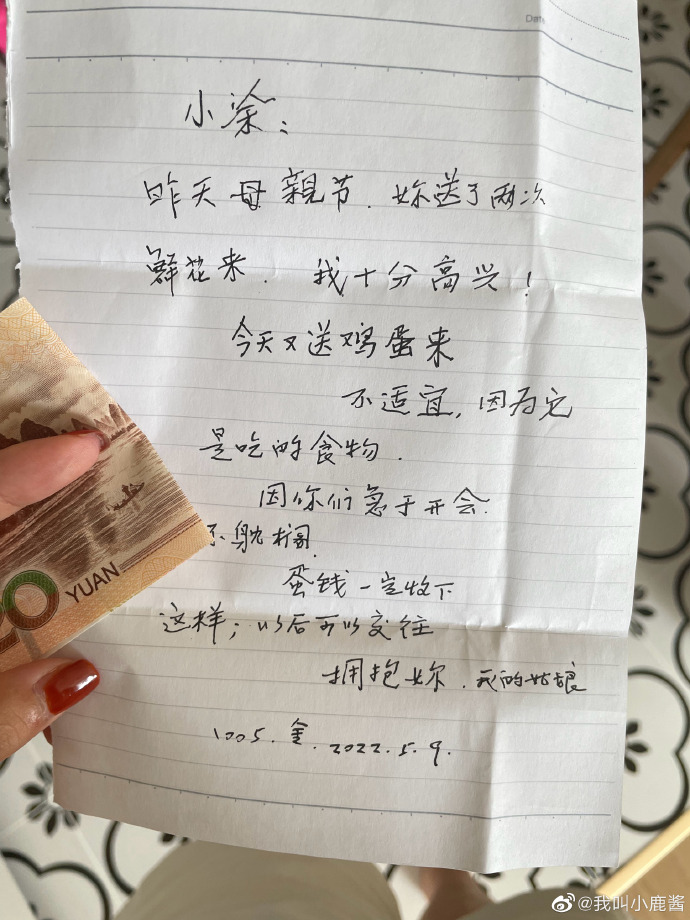 Date
小涂：
昨天母親节．妳送了两次
鲜花来．我十分高兴！
今天又送鸡蛋来
不适宜，因为它
是吃的食物．
因你们急于开会．
不躭搁．
蛋钱一定收下
这样；以后可以交往
拥抱妳．我的姑娘
1005．金．2022．5．9．
20 YUAN
@我叫小鹿酱